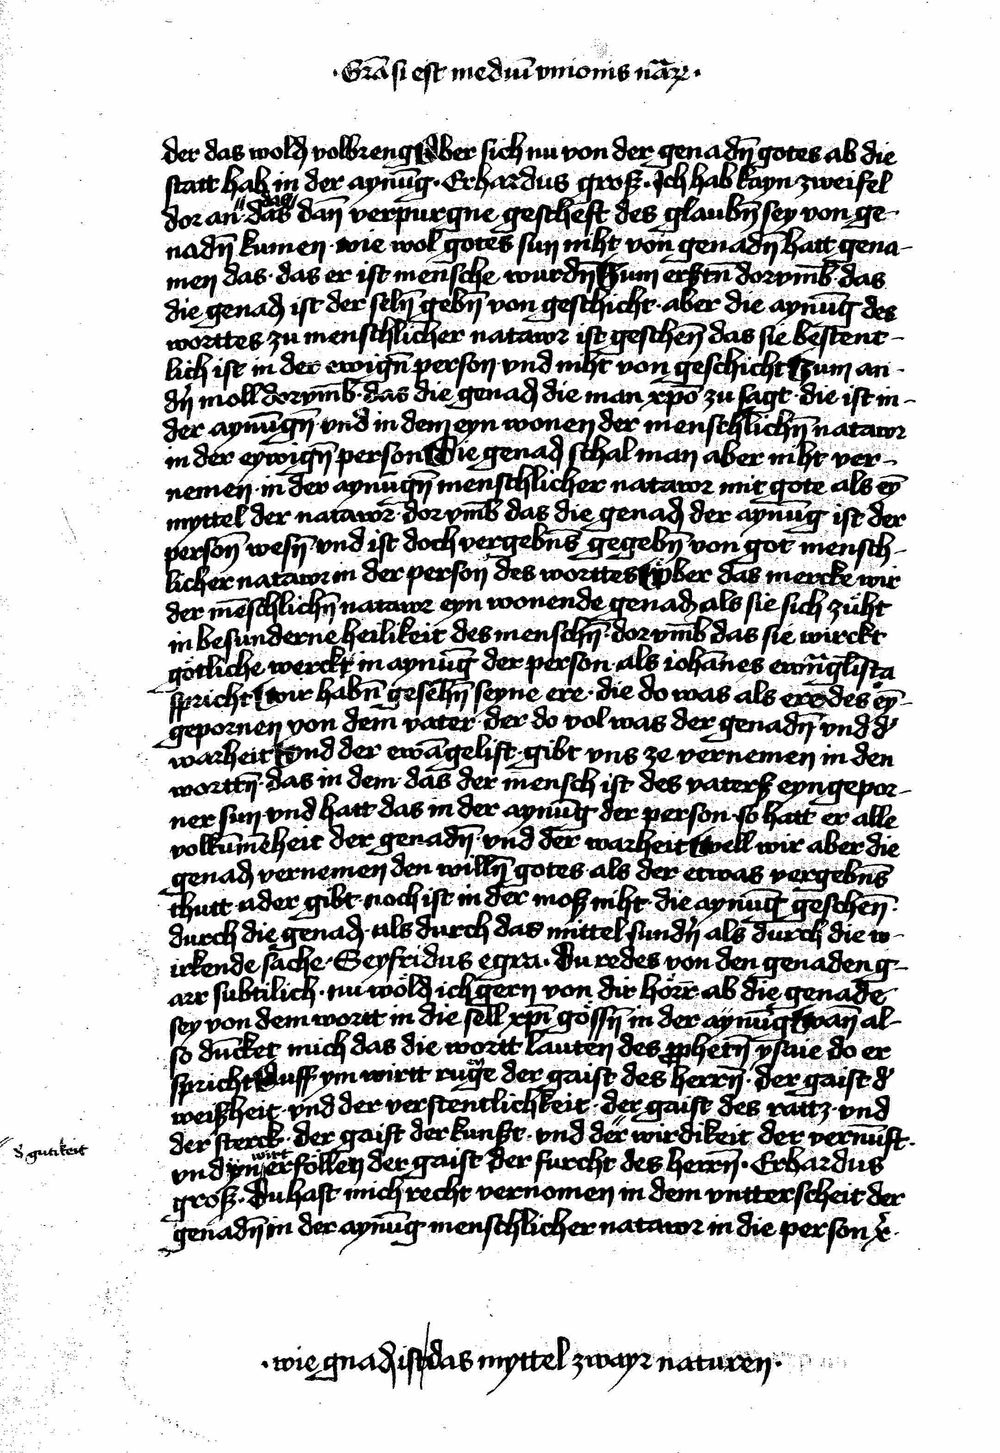 ·Gr̄a si est mediū vnionis nār̄ꝝ·
der das wold volbreng Aber sich nu von der genadn̄ gotes ab die
statt hab in der aynūg· Erhardus groß· Ich hab kayn zweifel
dor an· das dan̄ verpurgne gescheft des glaubn̄ sey von ge-
nadn̄ kumen· wie wol gotes sun niht von genadn̄ hatt geno-
men das· das er ist mensche wurdn̄ Zum erstn̄ dorvmb· das
die genad ist der seln̄ gebn̄ von geschicht· aber die aynūg des
worttes zu menschlicher natawr ist geschen̄ das sie bestent-
lich ist in der ewign̄ person vnd niht von geschicht Zum an-
dn̄ moll dorvmb· das die genad die man xp̄o zu sagt· die ist in-
der aynūgn̄ vnd in dem eyn wonen der menschlichn̄ natawr
in der eywign̄ person Die genad schal man aber niht ver-
nemen· in der aynūgn̄ menschlicher natawr mit gote als eȳ
myttel der natawr· dorvmb das die genad der aynūg ist der
person̄ wesn̄ vnd ist doch vergebn̄s gegebn̄ von got mensch-
licher natawr in der person des worttes Aber das mercke wir
der mēschlichn̄ natawr eyn wonende genad als sie sich züht
in besunderne heilikeit des menschn̄· dorvmb das sie wirckt
götliche werckt in aynūg der person· als iohānes ewāglista
spricht wir habn̄ gesehn̄ seyne ere· die do was als ere des eȳ-
gepornen von dem vater· der do vol was der genadn̄ vnd d'
warheit Vnd der ewāgelist· gibt vns ze vernemen in den
worttn̄· das in dem· das der mensch ist des vaterß eyngepor-
ner sun vnd hatt das in der aynūg der person· so hatt er alle
volkūmēheit der genadn̄ vnd der warheit Well wir aber die
genad vernemen den willn̄ gotes als der etwas vergebn̄s
thutt· ader gibt· noch ist in der moß niht die aynūg geschen̄
durch die genad· als durch das mittel sundn̄ als durch die w-
irkende sache· Seyfridus egra· Du redes von den genaden g-
arr subtilich· nu wöld ich gern von dir hörr ab die genade
sey von dem wortt in die sell xp̄i gössn̄ in der aynūg wān al-
so dūcket mich das die wortt lauten des ꝓphetn̄ ysaie do er
spricht Auff ym wirtt rugē der gaist des herrn̄· der gaist d'
weißheit· vnd der verstentlichkeit· der gaist des rattz· vnd
der sterck· der gaist der kunst· vnd der wirdikeit der vernūft·
d' gutikeit
vnd yn wirt erföllen der gaist der furcht des herrn̄· Erhardus
groß· Du hast mich recht vernomen in dem vntterscheit der
genadn̄ in der aynūg menschlicher natawr in die person x̄·
·wie gnad ist das myttel zwayr naturen·